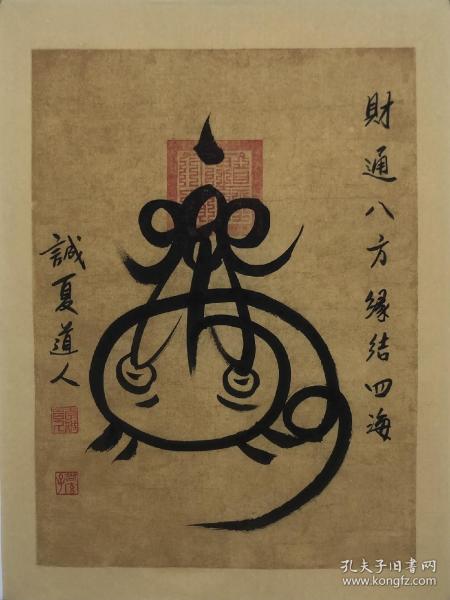 財通八方 緣结四海
誠夏道人
孔夫子旧书网
www.kongfz.com